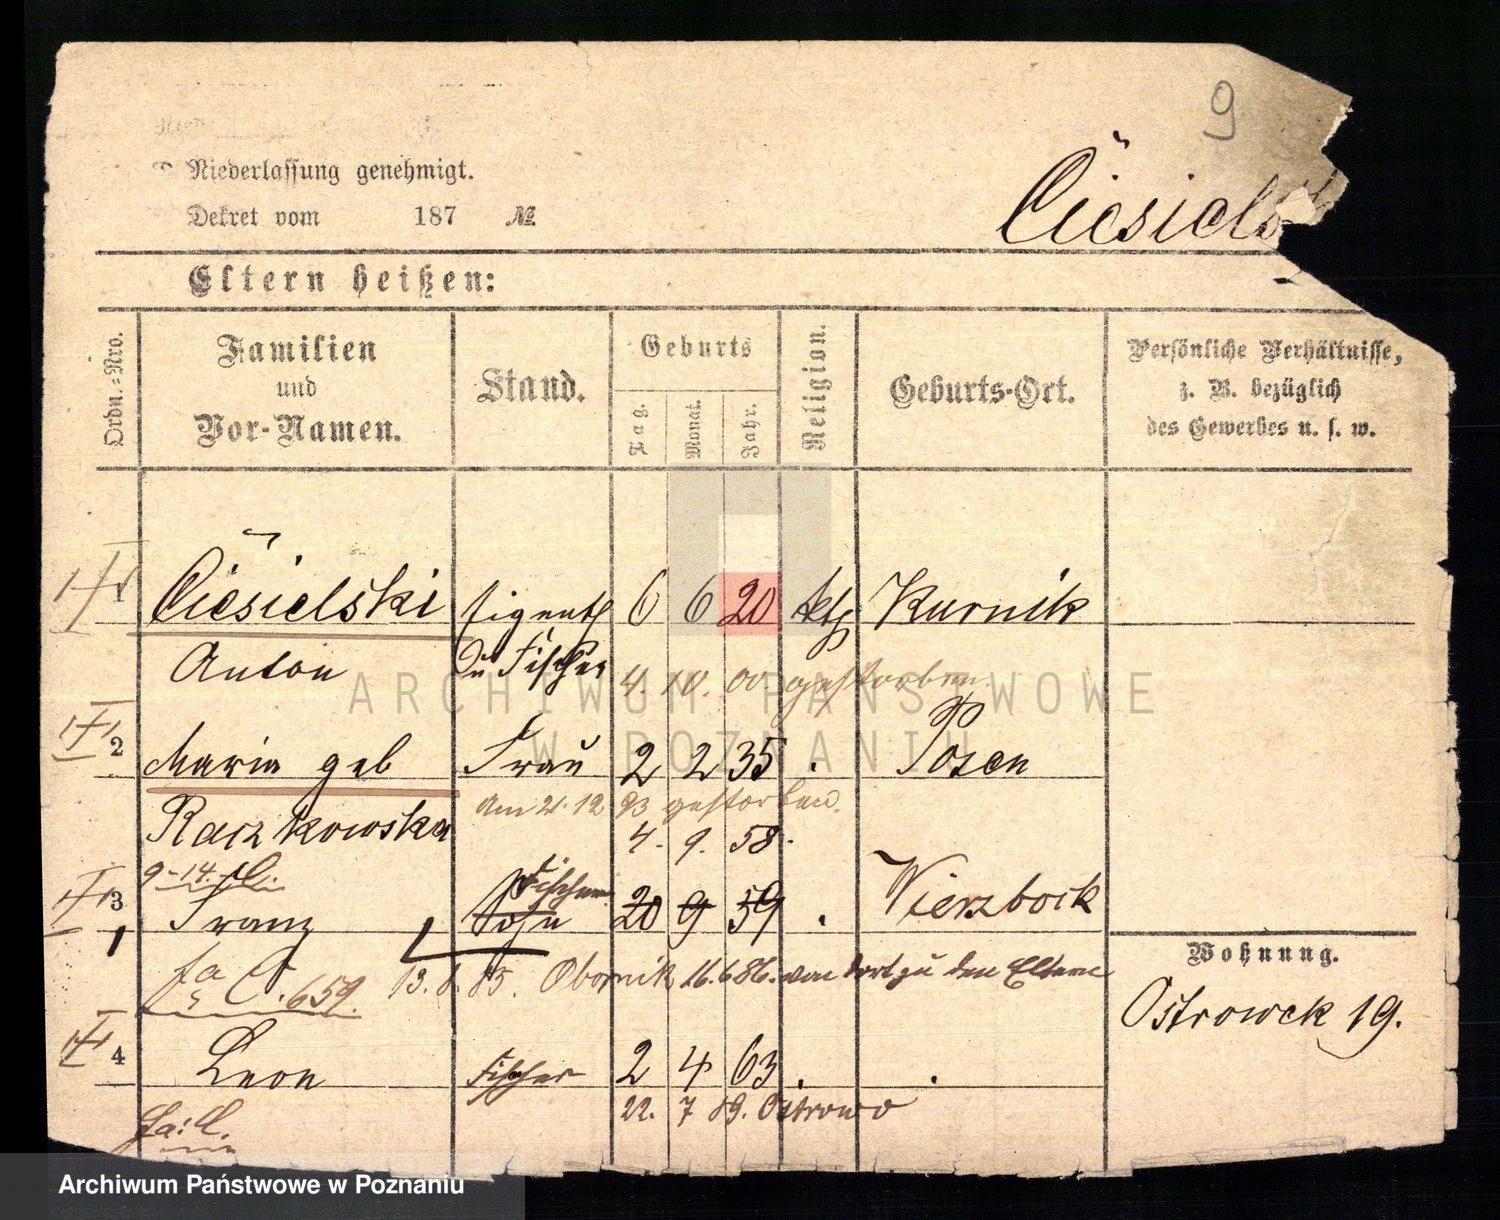 9
Niederlassung genehmigt.
Dekret vom 187 №
Ciesielski
Eltern heißen:
Ordn.-Nro.
Familien und Vor-Namen.
Stand.
Geburts
Tag. Monat. Jahr.
Religion.
Geburts-Ort.
Persönliche Verhältnisse,
z. B. bezüglich
des Gewerbes u. s. w.
1 Ciesielski Eigenth 6 6 20 kth Kurnik
Anton Fischer
4. 10. 00 gestorben
2 Maria geb Frau 2 2 35 . Posen
am 21.12 93 gestorben.
Raczkowska 4. 9. 58.
9-14.
Fischer
3 Franz Sohn 20 9 59 . Wierzbock
1
659. 13. 8. 85. Obornik 16.6 86. von dort zu den Eltern
Wohnung.
Ostrowek 19.
4 Leon Fischer 2 4 63 . .
22. 7 89. Ostrowo
ARCHIWUM PAŃSTWOWE
W POZNANIU
Archiwum Państwowe w Poznaniu